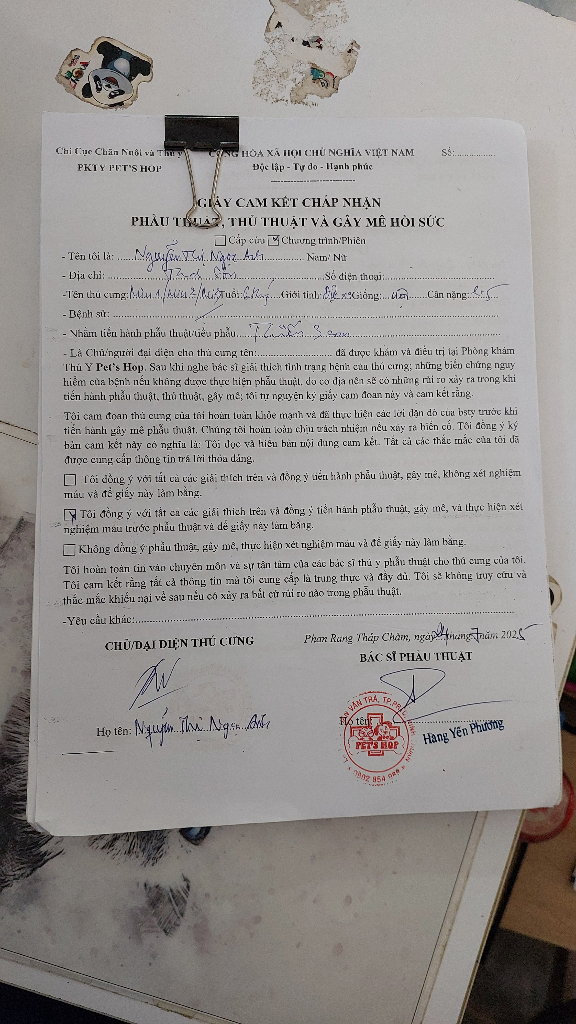 Chi Cục Chăn Nuôi và Thú y CỘNG HÒA XÃ HỘI CHỦ NGHĨA VIỆT NAM Số:
PKTY PET'S HOP Độc lập - Tự do - Hạnh phúc
GIẤY CAM KẾT CHẤP NHẬN
PHẪU THUẬT, THỦ THUẬT VÀ GÂY MÊ HỒI SỨC
Cấp cứu Chương trình/Phiên
- Tên tôi là: Nguyễn Thị Ngọc Anh Nam/ Nữ
- Địa chỉ: Số điện thoại:
-Tên thú cưng: Tuổi: Giới tính: Giống: Cân nặng:
- Bệnh sử:
- Nhằm tiến hành phẫu thuật/tiểu phẫu
- Là Chủ/người đại diện cho thú cưng tên: đã được khám và điều trị tại Phòng khám
Thú Y Pet's Hop. Sau khi nghe bác sĩ giải thích tình trạng bệnh của thú cưng; những biến chứng nguy
hiểm của bệnh nếu không được thực hiện phẫu thuật, do cơ địa nên sẽ có những rủi ro xảy ra trong khi
tiến hành phẫu thuật, thủ thuật, gây mê; tôi tự nguyện ký giấy cam đoan này và cam kết rằng.
Tôi cam đoan thú cưng của tôi hoàn toàn khỏe mạnh và đã thực hiện các lời dặn dò của bsty trước khi
tiến hành gây mê phẫu thuật. Chúng tôi hoàn toàn chịu trách nhiệm nếu xảy ra biến cố. Tôi đồng ý ký
bản cam kết này có nghĩa là: Tôi đọc và hiểu bản nội dung cam kết. Tất cả các thắc mắc của tôi đã
được cung cấp thông tin trả lời thỏa đáng.
Tôi đồng ý với tất cả các giải thích trên và đồng ý tiến hành phẫu thuật, gây mê, không xét nghiệm
máu và để giấy này làm bằng.
Tôi đồng ý với tất cả các giải thích trên và đồng ý tiến hành phẫu thuật, gây mê, và thực hiện xét
nghiệm máu trước phẫu thuật và để giấy này làm bằng.
Không đồng ý phẫu thuật, gây mê, thực hiện xét nghiệm máu và để giấy này làm bằng.
Tôi hoàn toàn tin vào chuyên môn và sự tận tâm của các bác sĩ thú y phẫu thuật cho thú cưng của tôi.
Tôi cam kết rằng tất cả thông tin mà tôi cung cấp là trung thực và đầy đủ. Tôi sẽ không truy cứu và
thắc mắc khiếu nại về sau nếu có xảy ra bất cứ rủi ro nào trong phẫu thuật.
-Yêu cầu khác:
Phan Rang Tháp Chàm, ngày 24 tháng 7 năm 2025
CHỦ/ĐẠI DIỆN THÚ CƯNG BÁC SĨ PHẪU THUẬT
Họ tên: Nguyễn Thị Ngọc Anh Họ tên:
PET'S HOP
Hàng Yên Phương